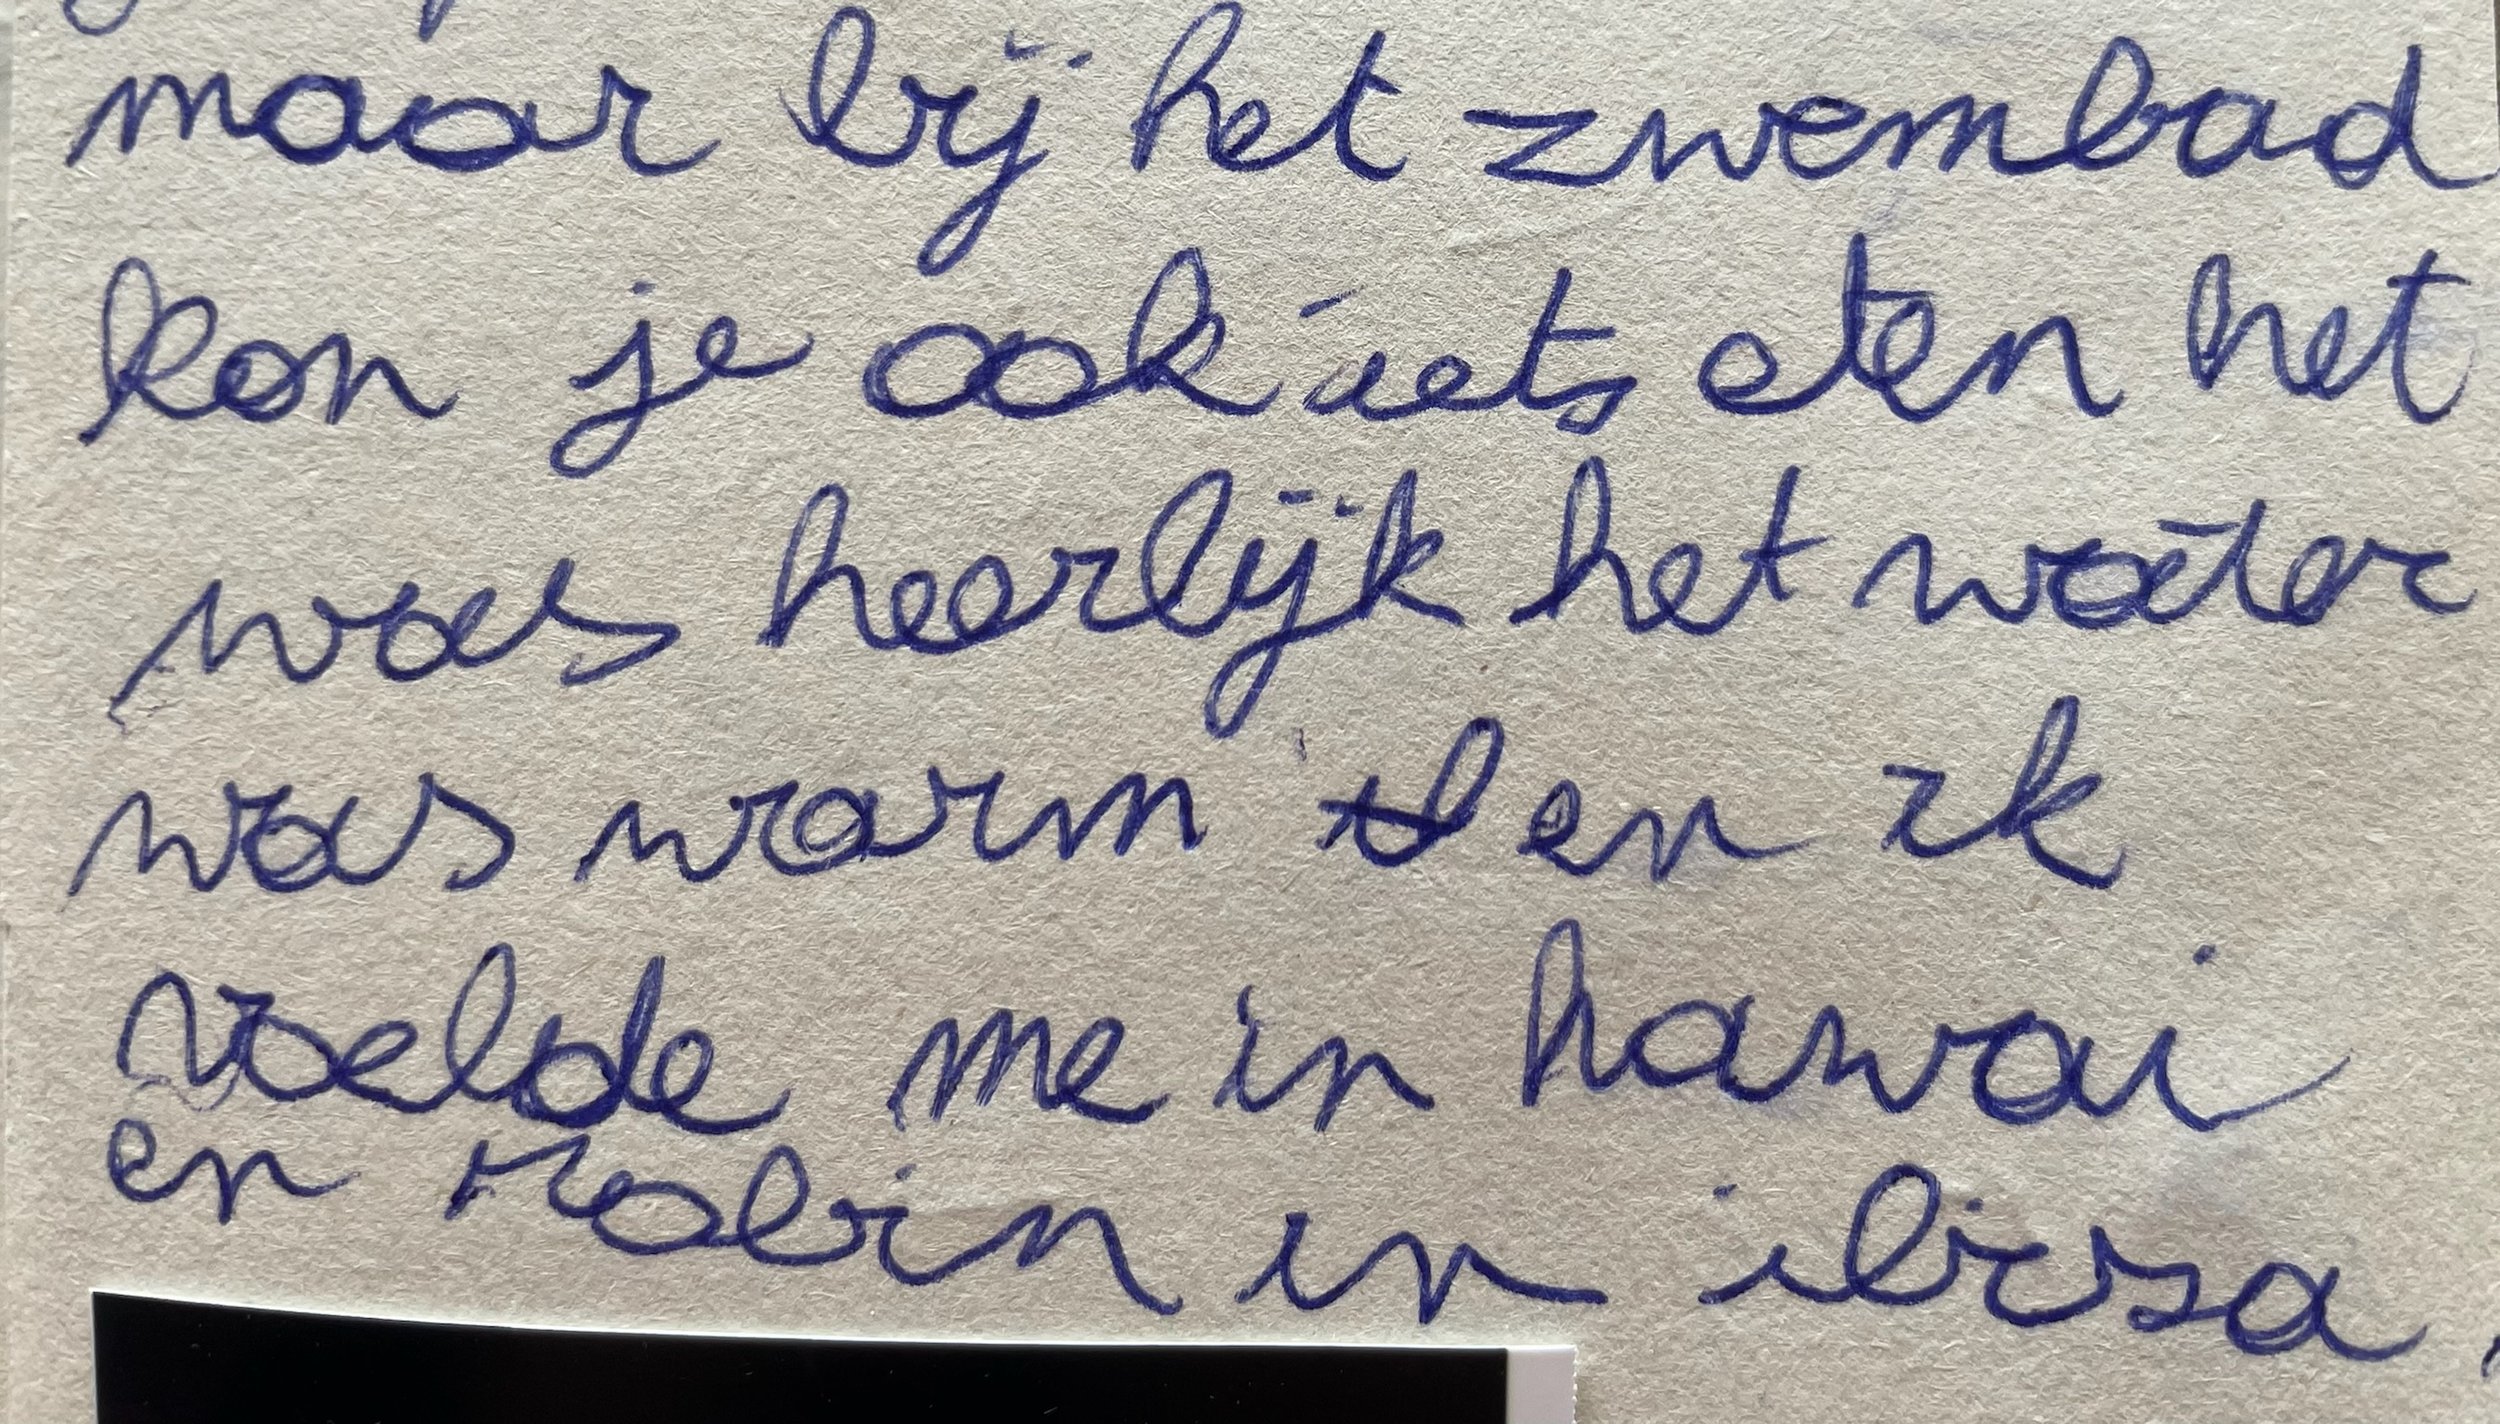 maar bij het zwembad
kon je ook iets eten het
was heerlijk het water
was warm en ik
voelde me in hawai
en Robin in ibiza